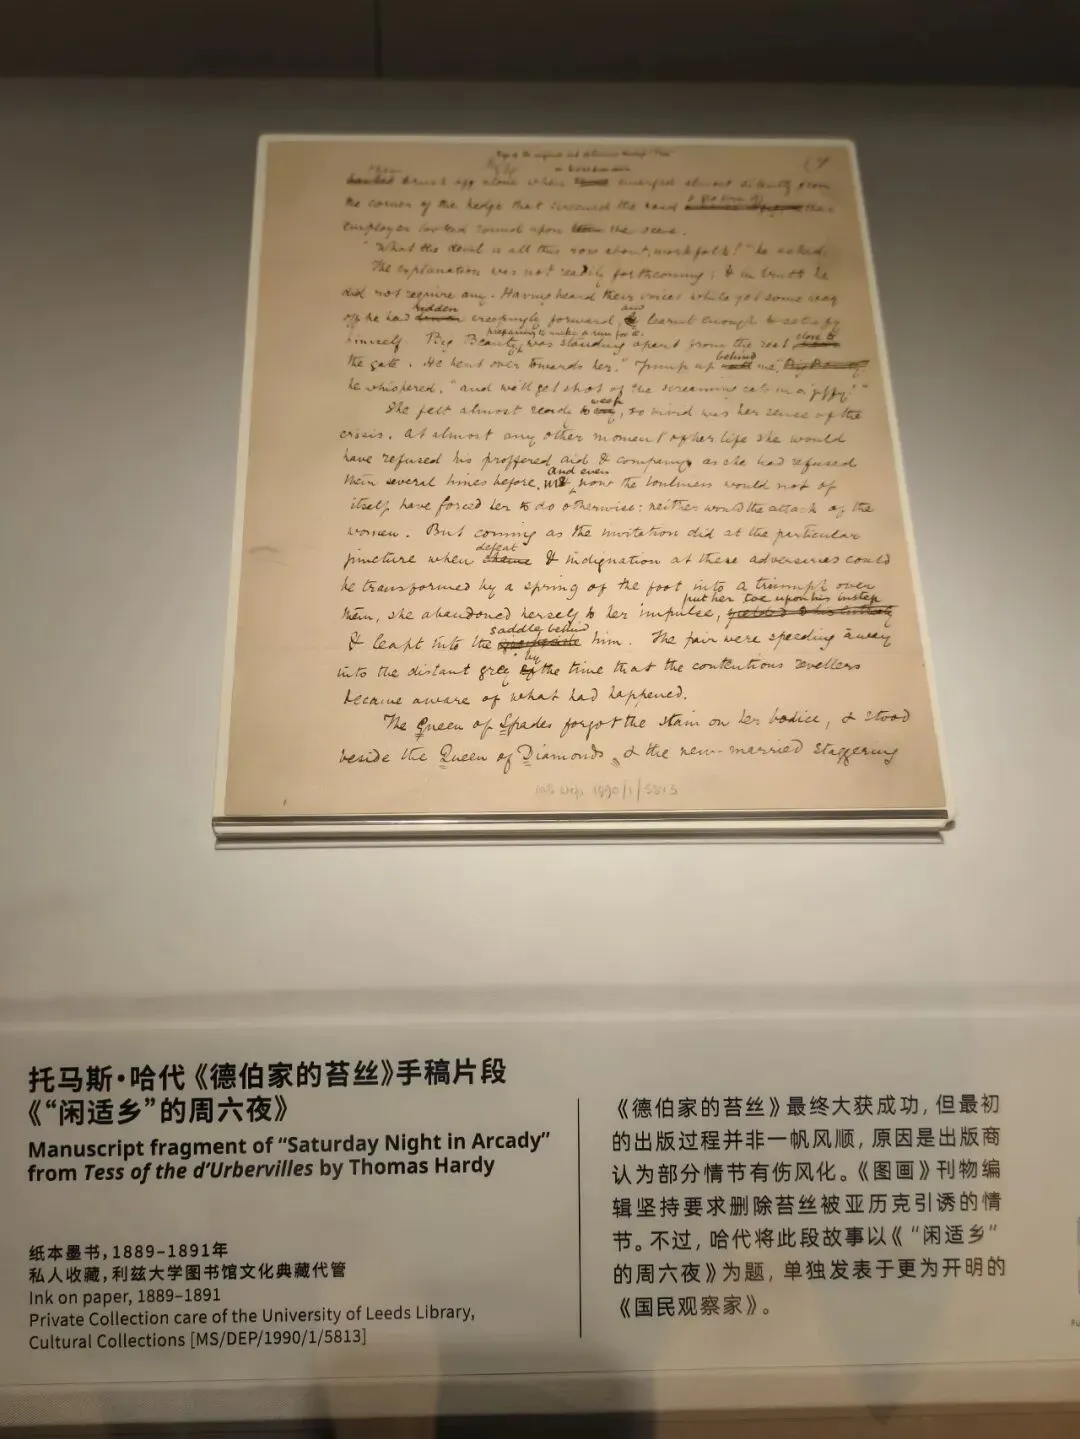 "What the devil is all this row about, workfolk?" he asked.
The explanation was not readily forthcoming; & in truth he
did not require any. Having heard their voices while yet some way
hidden and
off he had creepingly forward, learnt enough to satisfy
preparing to make a run for it, close to
himself. Big Beauty was standing apart from the rest
behind
the gate. He bent over towards her. "Jump up me,
he whispered, "and we'll get shot of the screaming cats in a jiffy!"
weep
She felt almost ready to, so vivid was her sense of the
crisis. At almost any other moment of her life she would
have refused his proffered aid & company as she had refused
and even
them several times before, now the loneliness would not of
itself have forced her to do otherwise: neither would the attack of the
women. But coming as the invitation did at the particular
defeat
juncture when & indignation at these adversaries could
be transformed by a spring of the foot into a triumph over
put her toe upon his instep
them, she abandoned herself to her impulse,
saddle behind
& leapt into the him. The pair were speeding away
by
into the distant grey the time that the contentious revellers
became aware of what had happened.
The Queen of Spades forgot the stain on her bodice, & stood
beside the Queen of Diamonds & the new-married staggering
MS Dep. 1990/1/5813
托马斯·哈代《德伯家的苔丝》手稿片段
《“闲适乡”的周六夜》
Manuscript fragment of “Saturday Night in Arcady”
from Tess of the d’Urbervilles by Thomas Hardy
纸本墨书，1889–1891年
私人收藏，利兹大学图书馆文化典藏代管
Ink on paper, 1889–1891
Private Collection care of the University of Leeds Library,
Cultural Collections [MS/DEP/1990/1/5813]
《德伯家的苔丝》最终大获成功，但最初
的出版过程并非一帆风顺，原因是出版商
认为部分情节有伤风化。《图画》刊物编
辑坚持要求删除苔丝被亚历克引诱的情
节。不过，哈代将此段故事以《“闲适乡”
的周六夜》为题，单独发表于更为开明的
《国民观察家》。